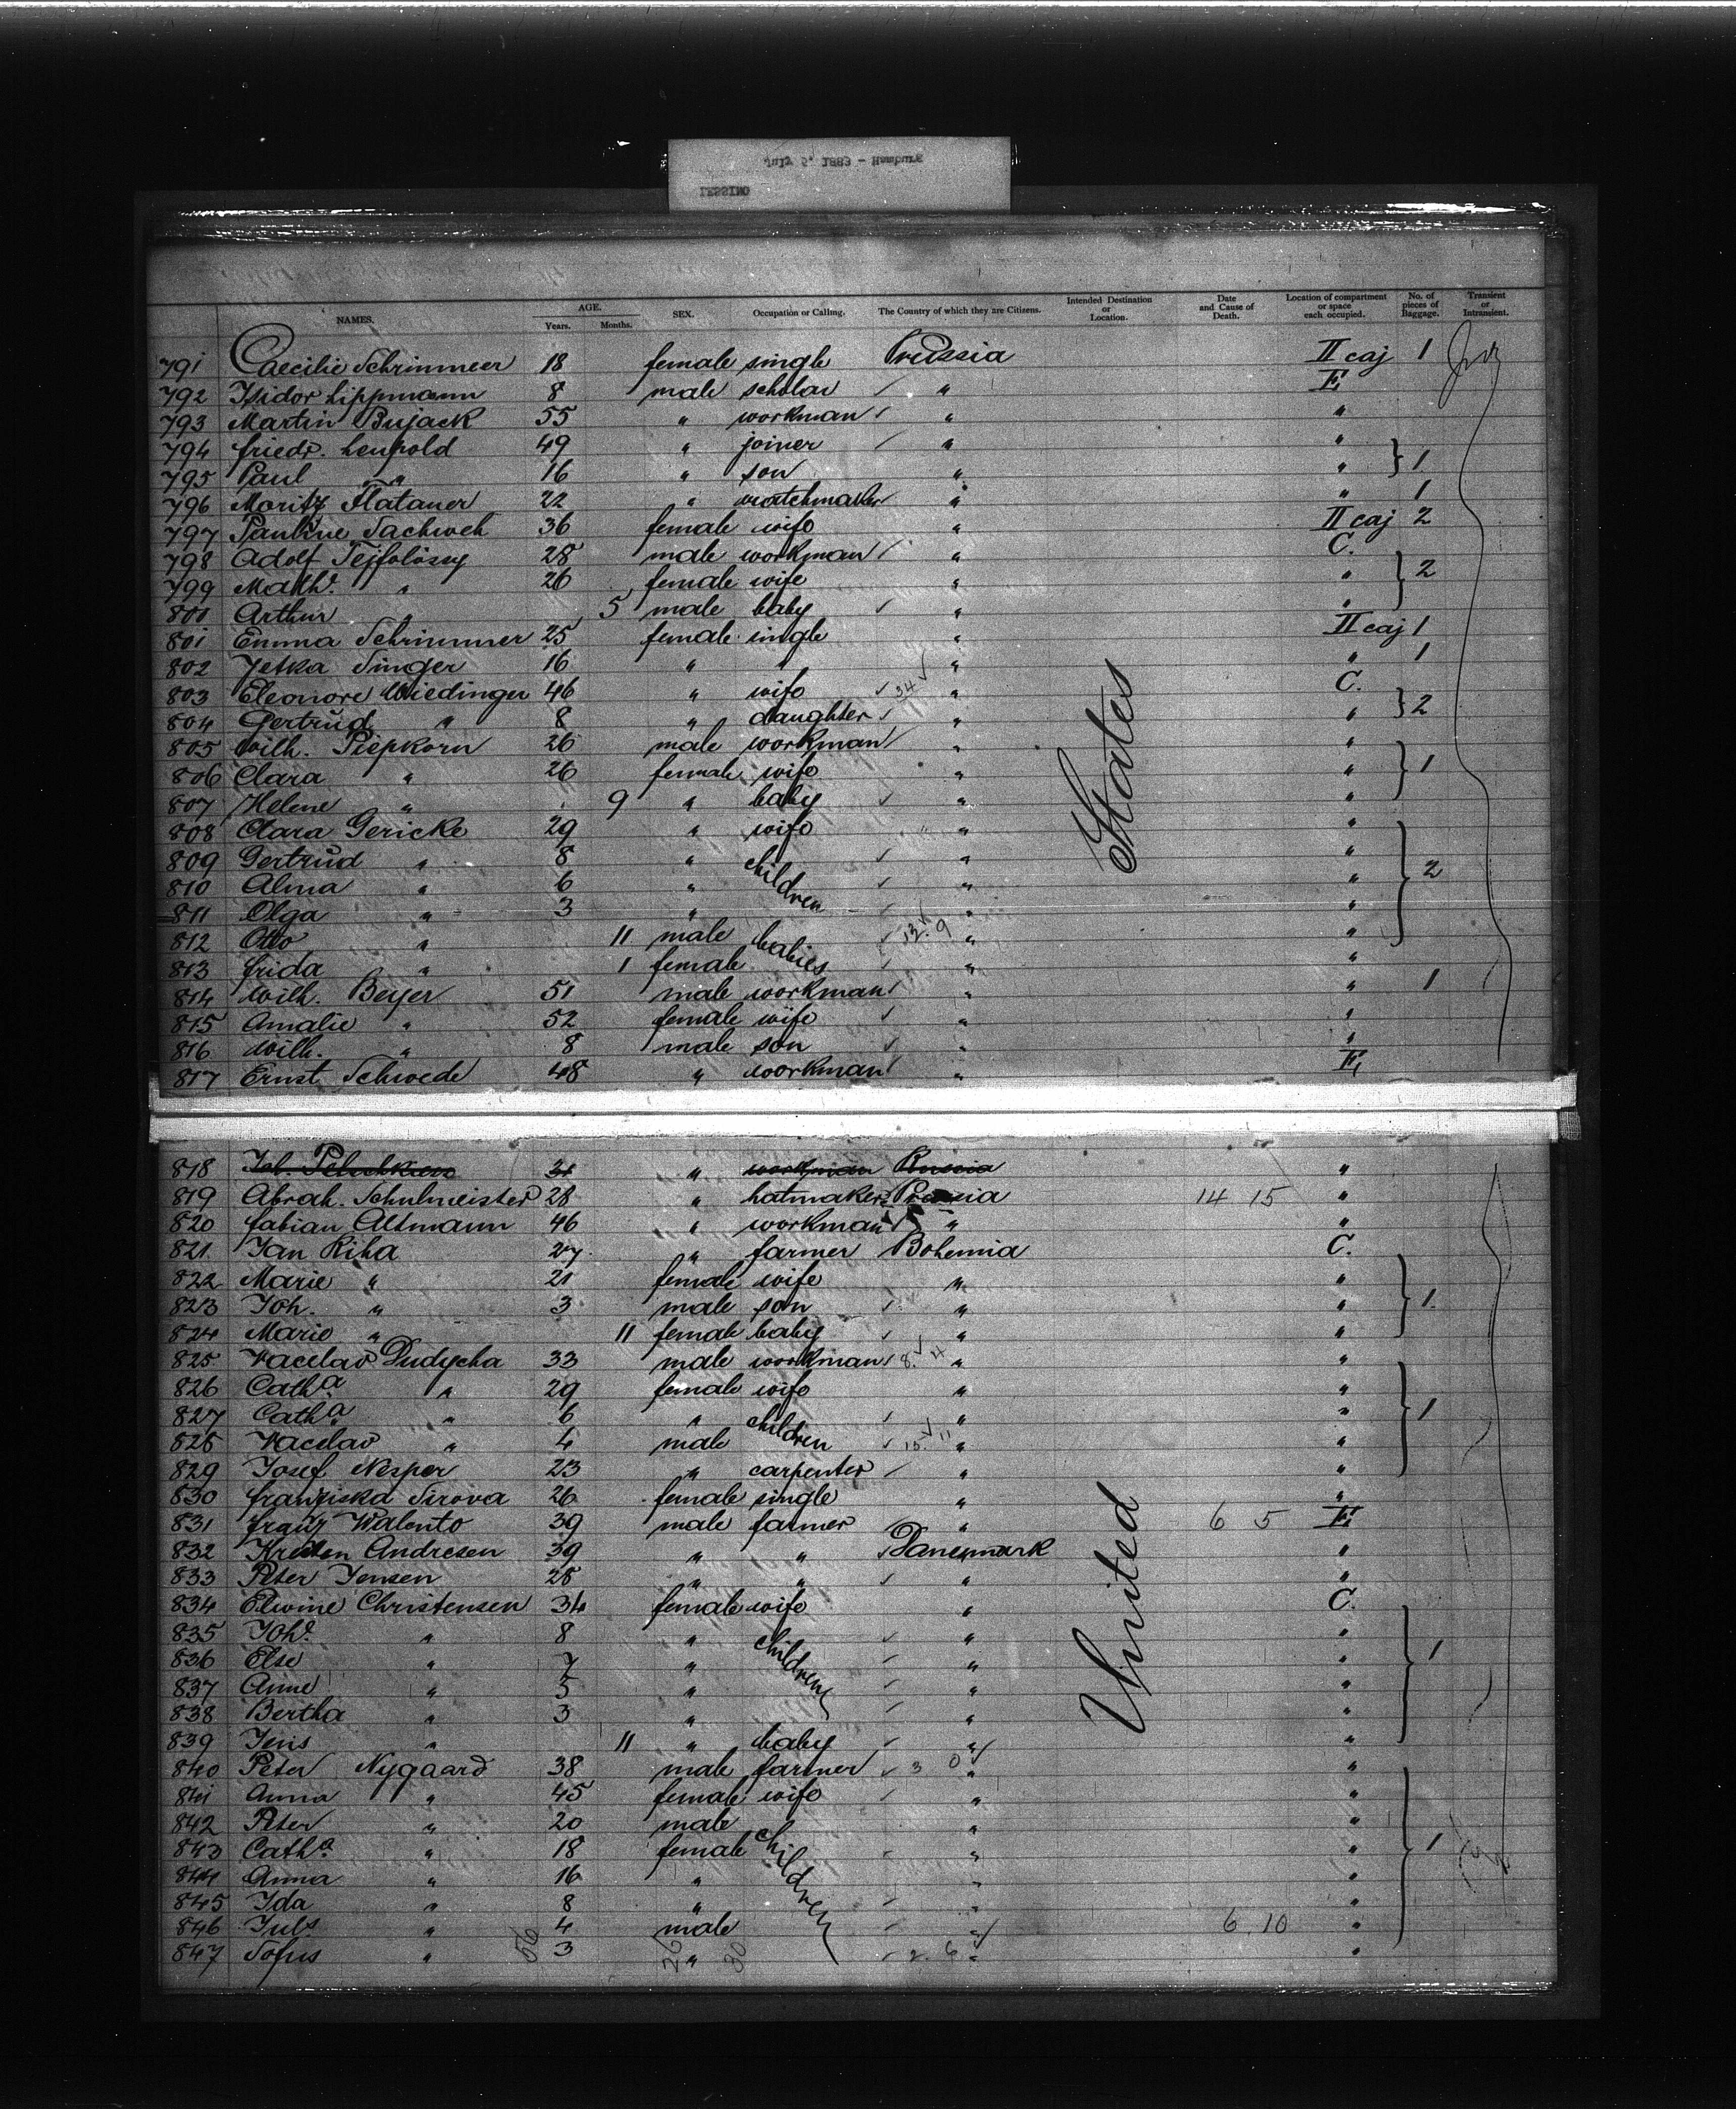 July 5, 1883 - Hamburg
LESSING
NAMES. AGE. Years. Months. SEX. Occupation or Calling. The Country of which they are Citizens. Intended Destination or Location. Date and Cause of Death. Location of compartment or space each occupied. No. of pieces of Baggage. Transient or Intransient.
791 Caecilie Schrimmer 18 female single Prussia II caj 1
792 Isidor Lippmann 8 male scholar " E
793 Martin Bujack 55 " workman " "
794 Friedr. Leupold 49 " joiner " "
795 Paul " 16 " son " " 1
796 Moritz Flatauer 22 " watchmaker " " 1
797 Pauline Sachweh 36 female wife " II caj 2
798 Adolf 28 male workman " C.
799 Mathe. " 26 female wife " " 2
800 Arthur " 5 male baby " "
801 Emma Schrimmer 25 female single " II caj 1
802 Jetka Singer 16 " " " " 1
803 Eleonore Wiedinger 46 " wife 34 " C.
804 Gertrud " 8 " daughter " " 2
805 Wilh. Piepkorn 26 male workman " "
806 Clara " 26 female wife " " 1
807 Helene " 9 " baby " "
808 Clara Gericke 29 " wife " "
809 Gertrud " 8 " children " "
810 Alma " 6 " " " 2
811 Olga " 3 " " "
812 Otto " 11 male babies 13. 9 " "
813 Frida " 1 female " "
814 Wilh. Beyer 51 male workman " " 1
815 Amalie " 52 female wife " "
816 Wilh. " 8 male son " "
817 Ernst Schwede 48 " workman " E
States
818 " workman Russia "
819 Abrah. Schulmeister 28 " hatmaker Prussia 14 15 "
820 Fabian Altmann 46 " workman " "
821. Jan Riha 27. " farmer Bohemia C.
822 Marie " 21 female wife " "
823 Joh. " 3 male son " " 1.
824 Marie " 11 female baby " "
825 Vaceslav Dudycha 33 male workman 8. 4 " "
826 Catha " 29 female wife " "
827 Catha " 6 " children " " 1
828 Vaceslav " 4 male 15. 11 " "
829 Josef Nesper 23 " carpenter " "
830 Franziska Sirova 26 female single " "
831 Franz Walento 39 male farmer " 6 5 E
832 Andresen 39 " " Danemark "
833 Peter Jensen 28 " " " "
834 Elwine Christensen 34 female wife " C.
835 Johe. " 8 " children " "
836 Else " 7 " " " 1
837 Anne " 5 " " "
838 Bertha " 3 " " "
839 Jens " 11 " baby " "
840 Peter Nygaard 38 male farmer 3 0 " "
841 Anna " 45 female wife " "
842 Peter " 20 male children " "
843 Catha " 18 female " " 1
844 Anna " 16 " " "
845 Ida " 8 " " "
846 Juls " 4 male " 6 10 "
847 Sofus " 3 " 2. 6 " "
56 26 30
United